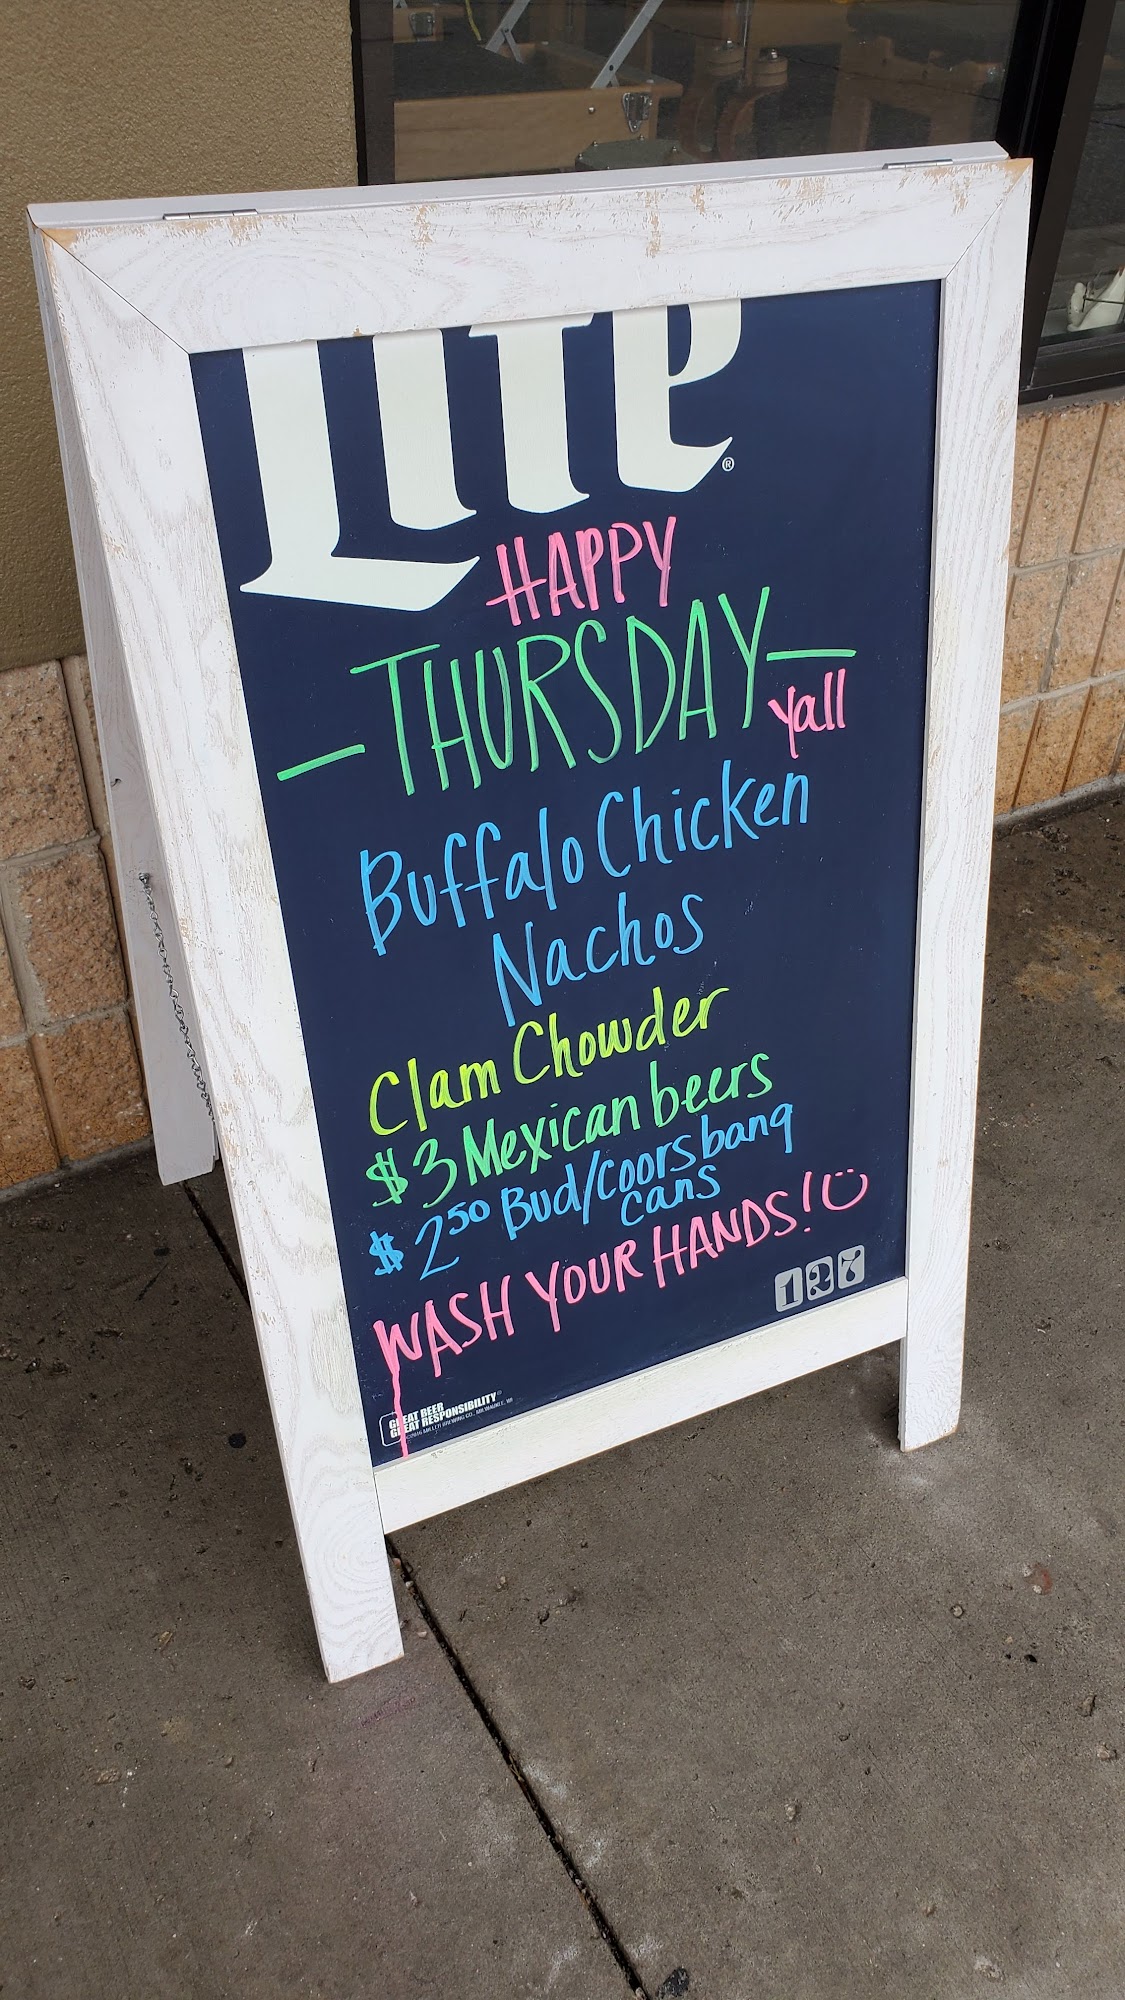 Lite®
HAPPY
-THURSDAY-
yall
Buffalo Chicken
Nachos
Clam Chowder
$3 Mexican beers
$2.50 Bud/Coors bang
cans
WASH YOUR HANDS!
127
GREAT BEER
GREAT RESPONSIBILITY®
MILLER BREWING CO., MILWAUKEE, WI